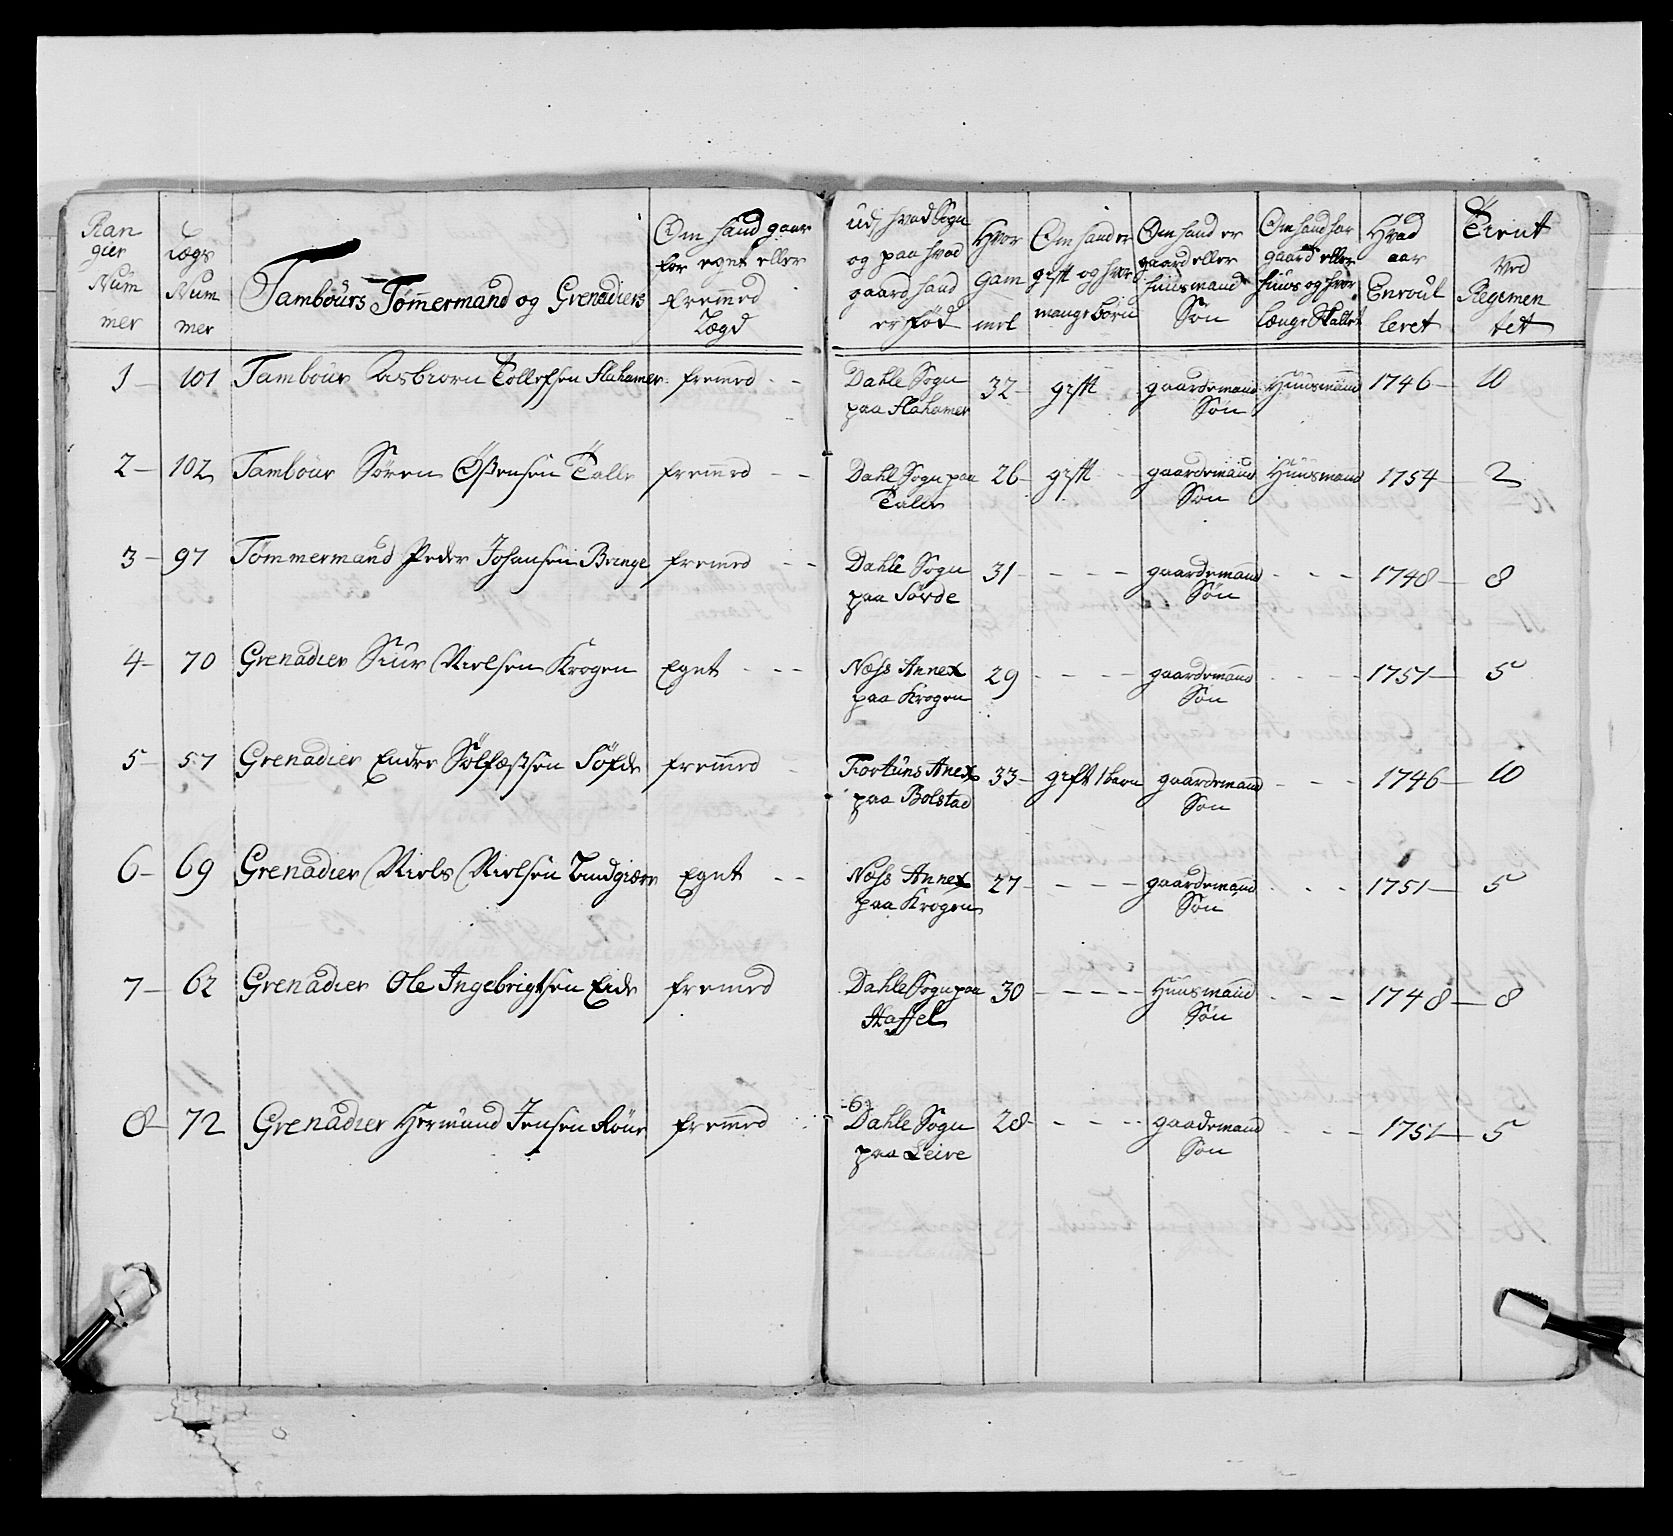 Ran
gier
Num
mer
Lægs
Num
mer
Tambours Tømmermand og Grenadiers
Om hand gaar
for eget eller
fremmed
Lægd
Ud hvad Sogn
og paa hvad
gaard hand
er fød
Hvor
gam
mel
Om hand er
gift og hvor
mange børn
Om hand er
gaard eller
huusmands
Søn
Om hand har
gaard eller
huus og hvor
længe Skattet
Hvad
aar
Enroul
leret
Tient
ved
Regimen
tet
1 101 Tambour Asbiorn Tollefsen Flahamer fremed Dahle Sogn paa Flahamer 32 gift gaardemand Søn Huusmand 1746 10
2 102 Tambour Sören Östensen Talle fremed Dahle Sogn paa Talle 26 gift gaardemand Søn Huusmand 1754 2
3 97 Tømmermand Peder Johansen Bringe fremed Dahle Sogn paa Sørde 31 gaardemand Søn 1748 8
4 70 Grenadier Siur Nielsen Krogen Eget Næss Annex paa Krogen 29 gaardemand Søn 1751 5
5 57 Grenadier Endre Sölfæstsen fremmed Fiortuns Anex paa Bolstad 33 gift 1 barn gaardemand Søn 1746 10
6 69 Grenadier Niels Nielsen Eget Næss Annex paa Krogen 27 gaardemand Søn 1751 5
7 62 Grenadier Ole Ingebrigtsen Eide fremed Dahle Sogn paa Haffel 30 Huusmand Søn 1748 8
8 72 Grenadier Hermund Jensen fremmed Dahle Sogn paa Leire 28 gaademand Søn 1751 5